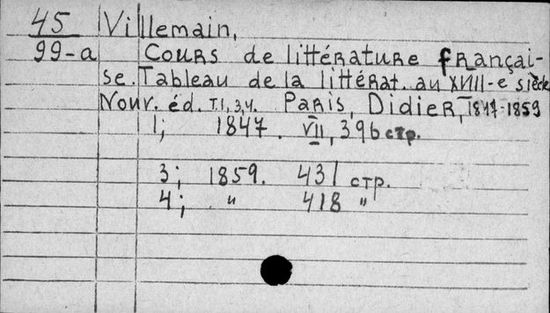 45 Villemain,
99-a Cours de littérature françai-
se. Tableau de la littérat. au XVIII-e siècle
Nouv. éd. T.1,3,4. Paris, Didier, 1847-1859
1; 1847. VII, 396 стр.
3; 1859. 431 стр.
4; " 418 "